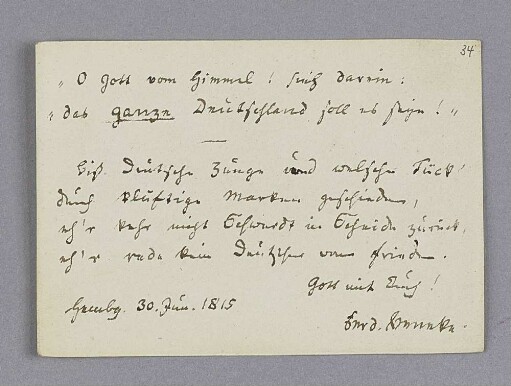 34
„ O Gott vom Himmel! sieh' darein:
„ das ganze Deutschland soll es seyn! „
Bis Deutsche Zunge und welsche Tück'
durch kluftige Marken geschieden,
eh'r kehr' nicht Schwerdt in Scheide zurück,
eh'r rede kein Deutscher von Frieden.
Gott mit Euch!
Hambg. 30. Jun. 1815
Ferd. Beneke.